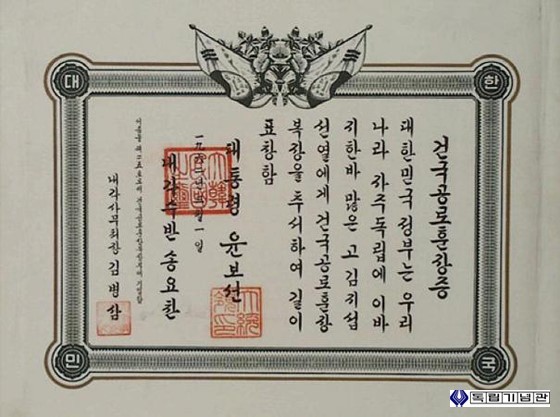 대 한
민 국
건국공로훈장증
대한민국 정부는 우리
나라 자주독립에 이바
지한바 많은 고 김지섭
선열에게 건국공로훈장
복장을 추서하여 길이
표창함
대통령 윤보선
一九六二년 三월 一일
내각수반 송요찬
이증을
내각사무처장 김병삼
독립기념관